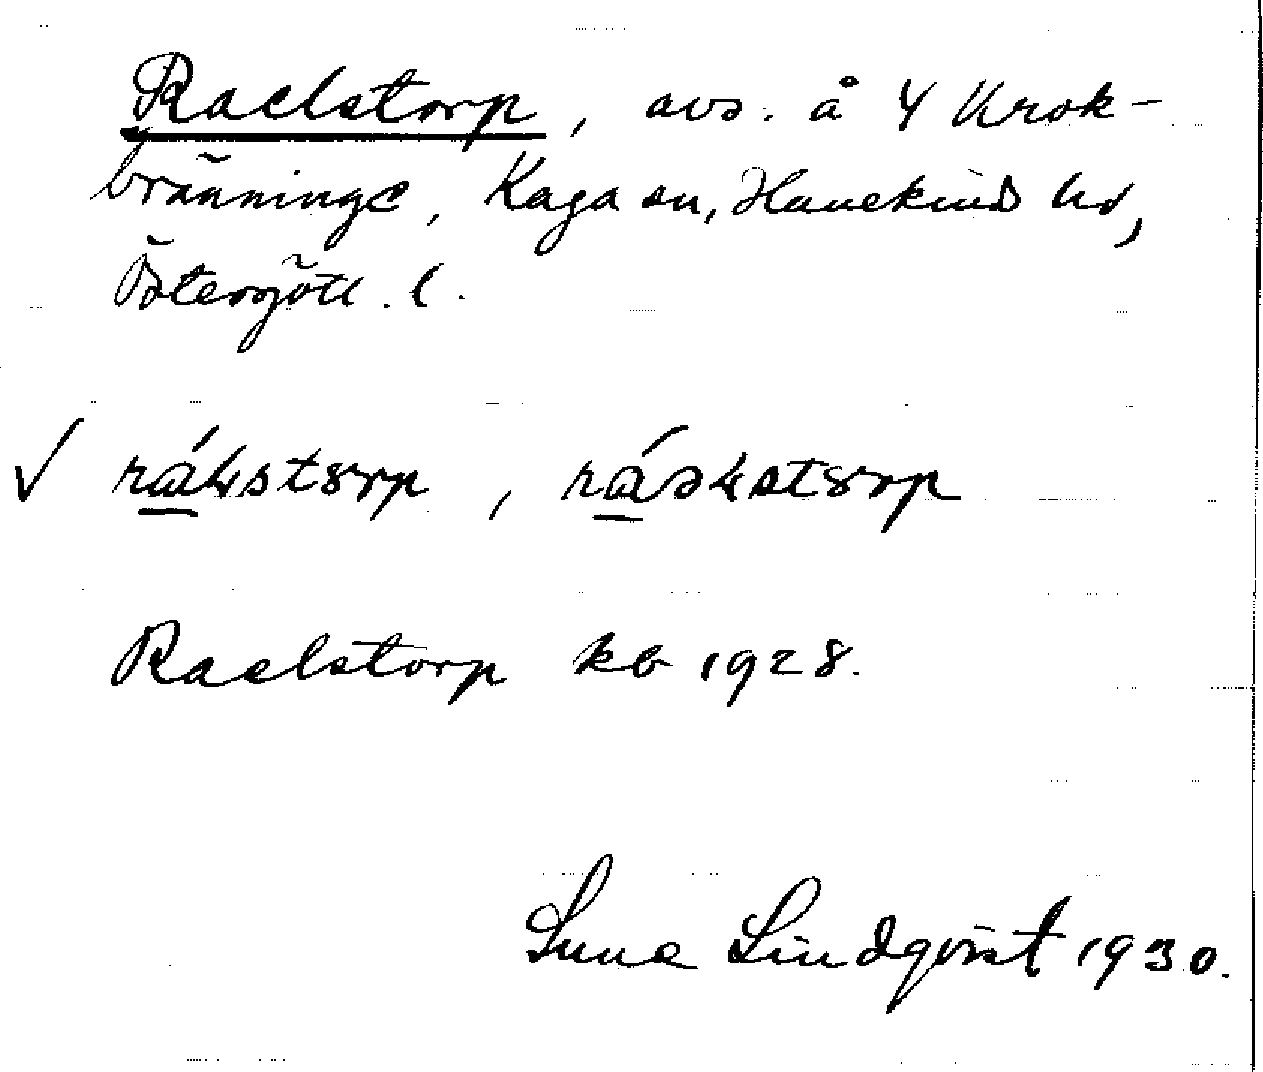 Raelstorp, avs. å 4 Krok-
bränninge, Kaga sn, Hanekinds hd,
Östergötl. l.
√ rálstorp, ráəlstorp
Raelstorp kb 1928.
Sune Lindqvist 1930.